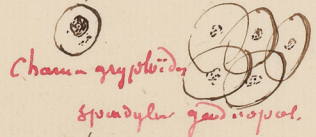 Chama gryphoïdes
spondylus gaederopus.